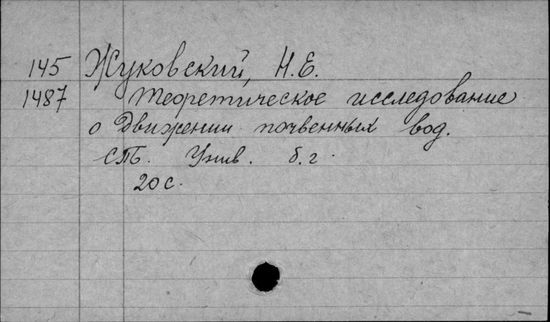 145 Жуковский, Н.Е.
1487 Теоретическое исследование
о движении почвенных вод.
СПб. Унив. б.г.
20 с.